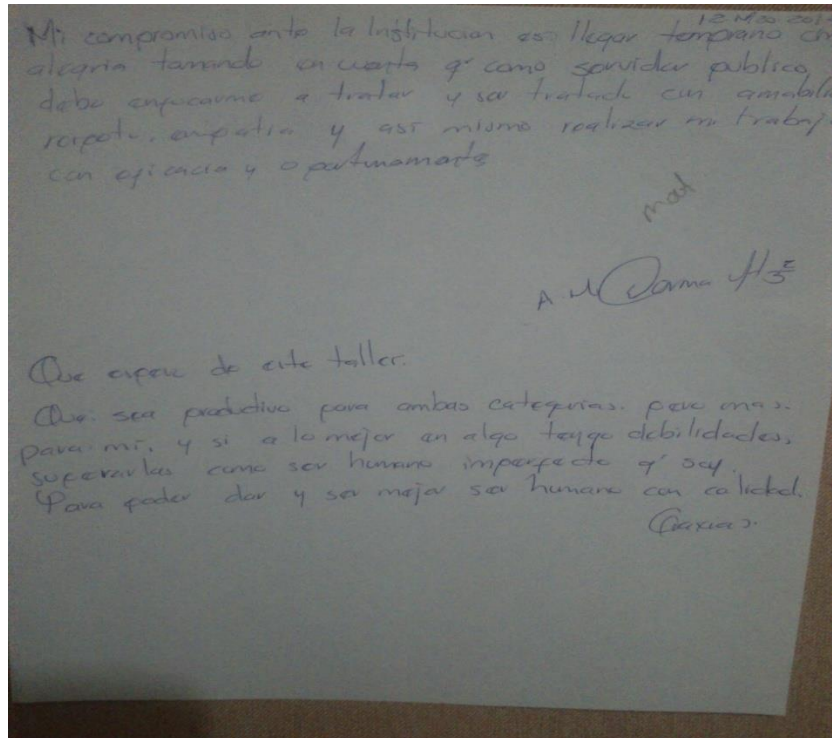 12 Mzo 201
Mi compromiso ante la Institucion es llegar temprano con
alegria tomando en cuenta q' como servidor publico,
debo enfocarme a tratar y ser tratado con amabili
respeto, empatia y asi mismo realizar mi trabaj
con eficacia y oportunamente
A.M Norma
Que espero de este taller.
Que sea productivo para ambas categorias. pero mas.
para mi, y si a lo mejor en algo tengo debilidades,
superarlas como ser humano imperfecto q' soy.
Para poder dar y ser mejor ser humano con calidad.
Gracias.